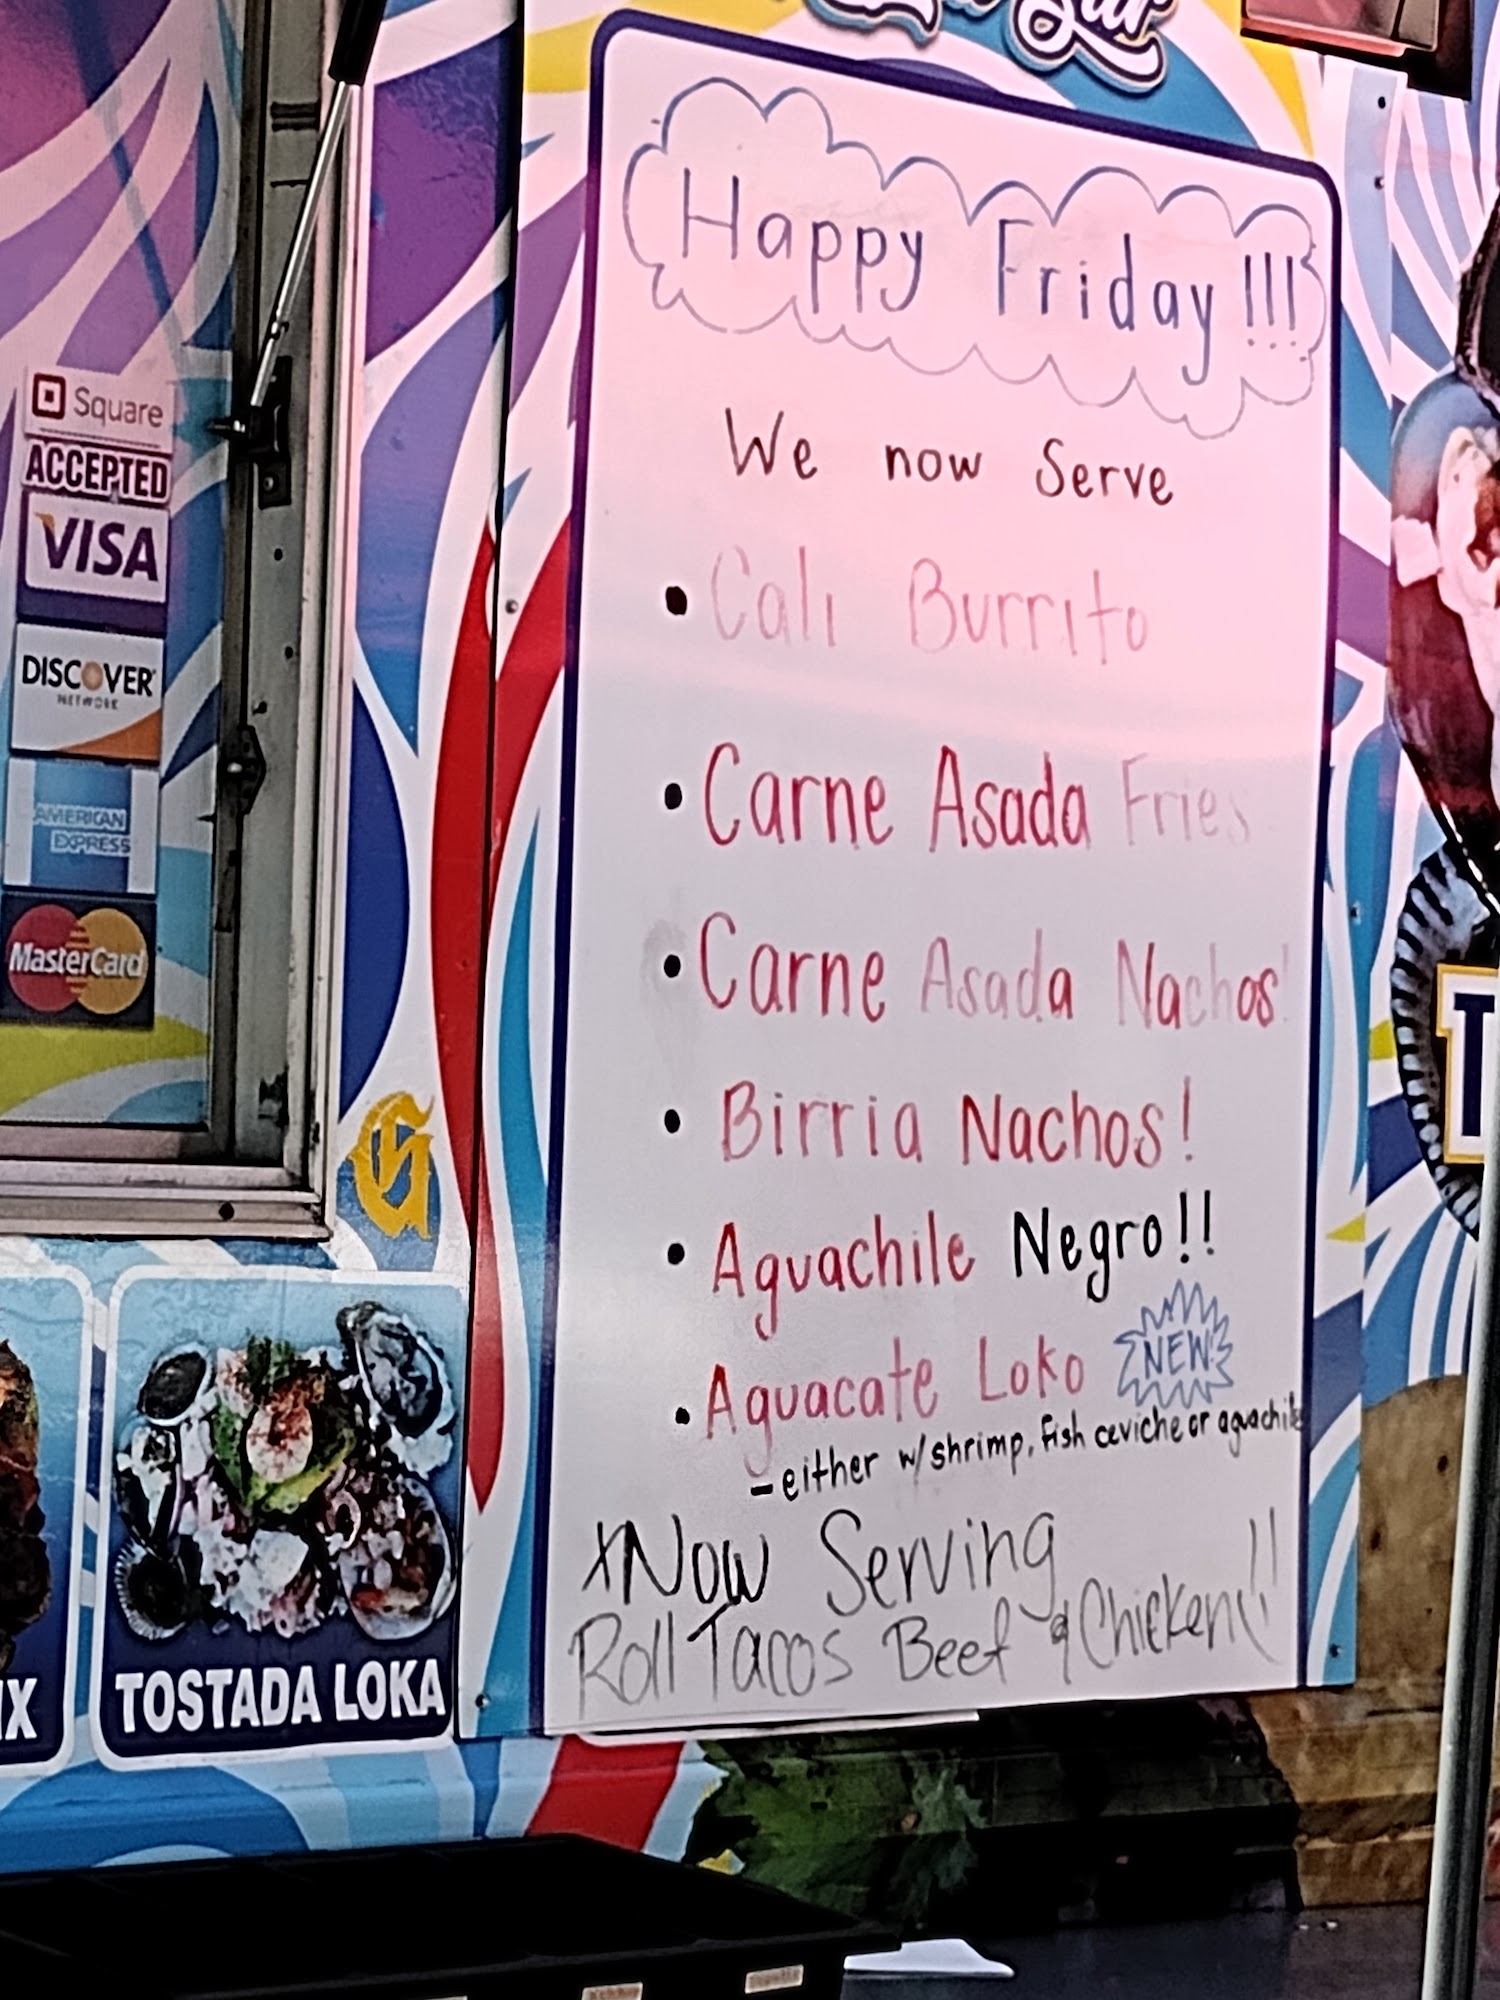 Happy Friday!!!
We now Serve
• Cali Burrito
• Carne Asada Fries
• Carne Asada Nachos!
• Birria Nachos!
• Aguachile Negro!!
• Aguacate Loko NEW
- either w/shrimp, fish ceviche or aguachile
x Now Serving
Roll Tacos Beef & Chicken!!
Square
ACCEPTED
VISA
DISCOVER
NETWORK
AMERICAN
EXPRESS
MasterCard
G
IX
TOSTADA LOKA
T